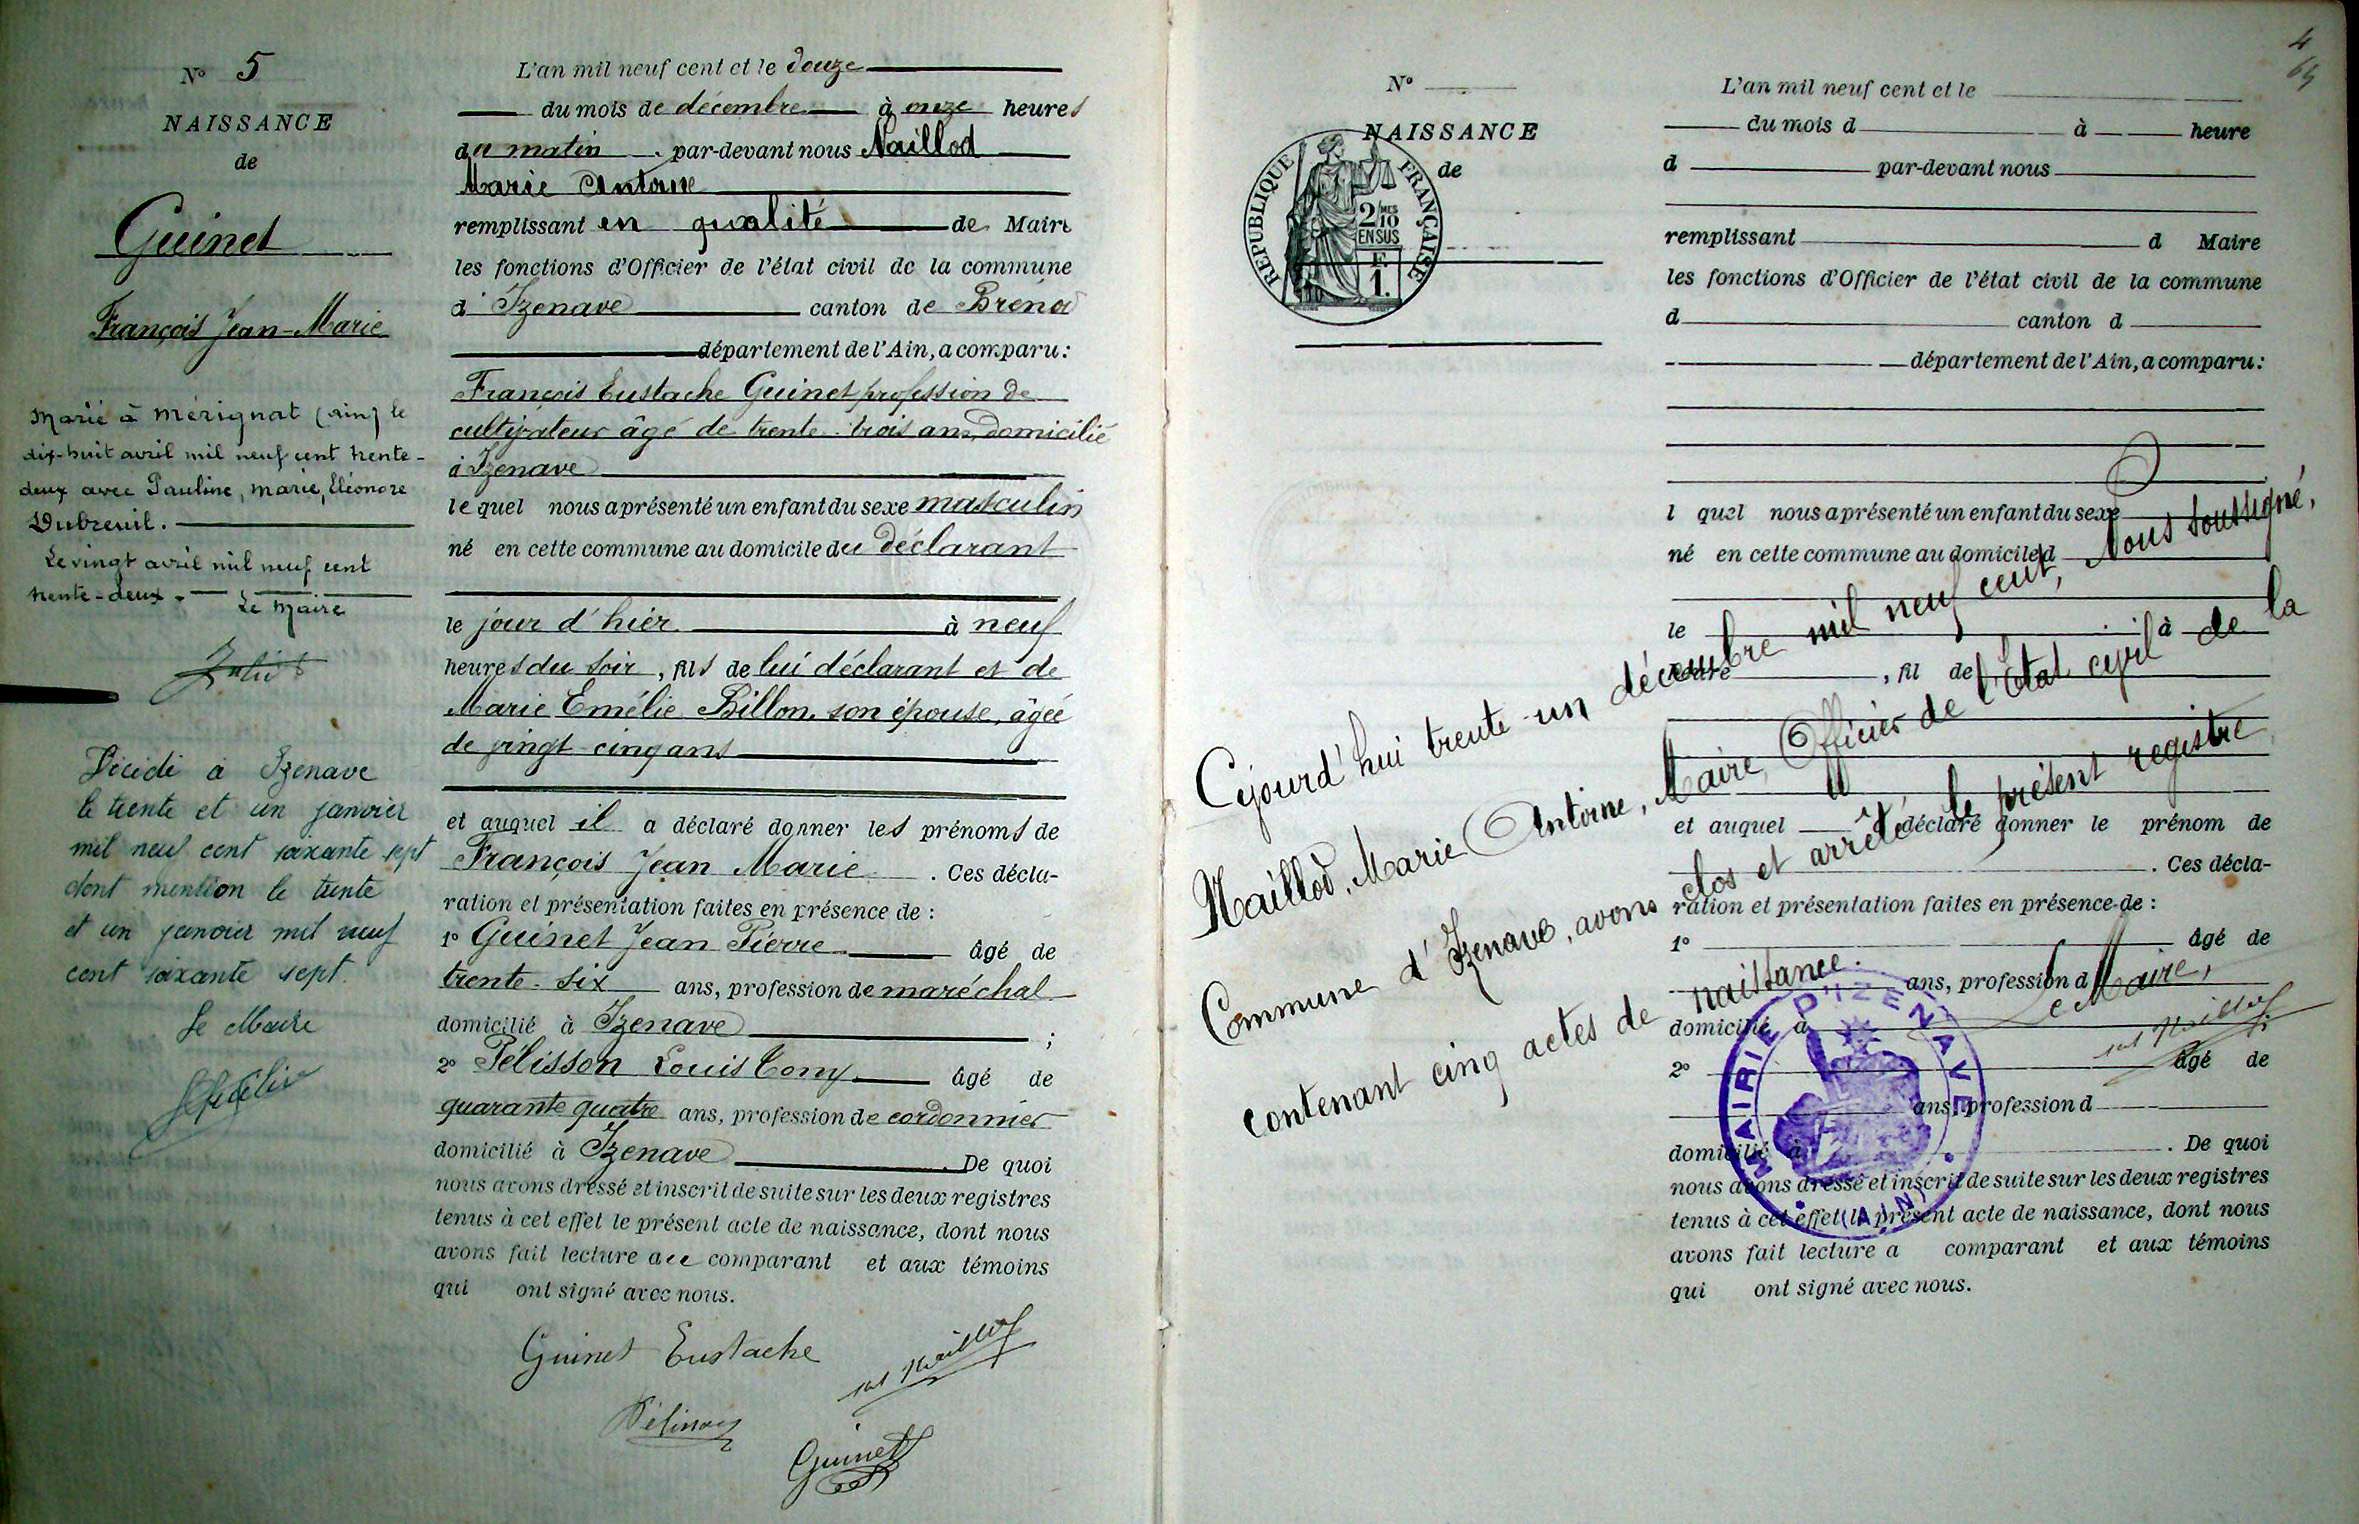 N° 5
NAISSANCE
de
Guinet
François Jean-Marie
Marié à Mérignat (Ain) le
dix-huit avril mil neuf cent trente-
deux avec Pauline, Marie, Eléonore
Dubreuil.
Le vingt avril mil neuf cent
trente-deux.
Le Maire
Décédé à Izenave
le trente et un janvier
mil neuf cent soixante sept
dont mention le trente
et un janvier mil neuf
cent soixante sept.
Le Maire
L'an mil neuf cent et le douze
du mois de décembre à onze heures
du matin, par-devant nous Naillod
Marie Antoine
remplissant en qualité de Maire
les fonctions d'Officier de l'état civil de la commune
d'Izenave canton de Brénod
département de l'Ain, a comparu:
François Eustache Guinet profession de
cultivateur âgé de trente-trois ans, domicilié
à Izenave
lequel nous a présenté un enfant du sexe masculin
né en cette commune au domicile du déclarant
le jour d'hier à neuf
heures du soir, fils de lui déclarant et de
Marie Emélie Billon, son épouse, âgée
de vingt-cinq ans
et auquel il a déclaré donner les prénoms de
François Jean Marie. Ces décla-
ration et présentation faites en présence de :
1° Guinet Jean Pierre âgé de
trente-six ans, profession de maréchal
domicilié à Izenave ;
2° Pélisson Louis Tony âgé de
quarante quatre ans, profession de cordonnier
domicilié à Izenave. De quoi
nous avons dressé et inscrit de suite sur les deux registres
tenus à cet effet le présent acte de naissance, dont nous
avons fait lecture au comparant et aux témoins
qui ont signé avec nous.
Guinet Eustache
Naillod
Pélisson
Guinet
4
65
N°
NAISSANCE
de
REPUBLIQUE FRANÇAISE
2/10 MES
EN SUS
F.
1.
L'an mil neuf cent et le
du mois d à heure
d par-devant nous
remplissant d Maire
les fonctions d'Officier de l'état civil de la commune
d canton d
département de l'Ain, a comparu:
l quel nous a présenté un enfant du sexe
né en cette commune au domicile d
le à
heure , fil de
et auquel a déclaré donner le prénom de
. Ces décla-
ration et présentation faites en présence de :
1° âgé de
ans, profession d
domicilié à
2° âgé de
ans, profession d
domicilié à . De quoi
nous avons dressé et inscrit de suite sur les deux registres
tenus à cet effet le présent acte de naissance, dont nous
avons fait lecture a comparant et aux témoins
qui ont signé avec nous.
Cejourd'hui trente-un décembre mil neuf cent, Nous soussigné,
Naillod, Marie Antoine, Maire, Officier de l'état civil de la
Commune d'Izenave, avons clos et arrêté le présent registre
contenant cinq actes de naissance.
Le Maire,
Naillod
MAIRIE D'IZENAVE
(AIN)